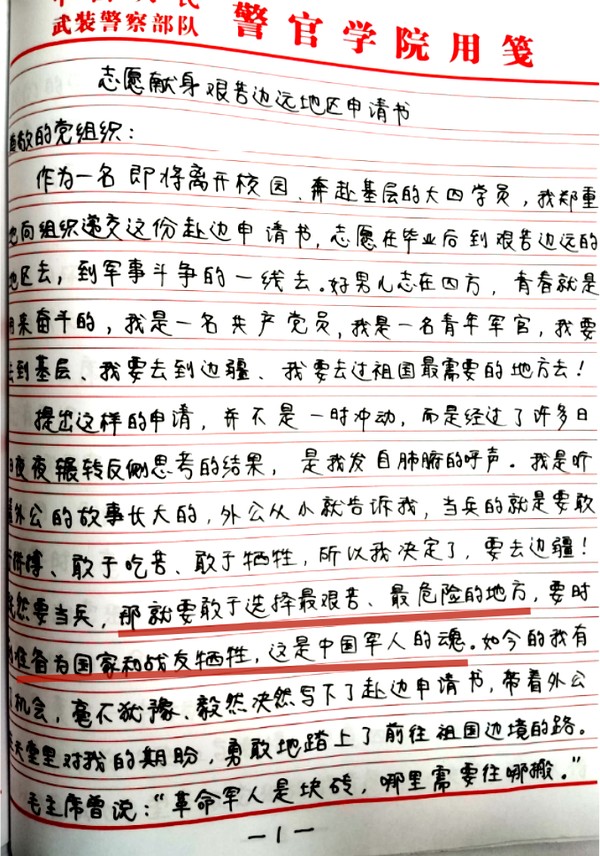 武装警察部队
警官学院用笺
志愿献身艰苦边远地区申请书
敬的党组织：
作为一名即将离开校园、奔赴基层的大四学员，我郑重
地向组织递交这份赴边申请书，志愿在毕业后到艰苦边远的
地区去，到军事斗争的一线去。好男儿志在四方，青春就是
用来奋斗的，我是一名共产党员，我是一名青年军官，我要
去到基层、我要去到边疆、我要去过祖国最需要的地方去！
提出这样的申请，并不是一时冲动，而是经过了许多日
日夜夜辗转反侧思考的结果，是我发自肺腑的呼声。我是听
着外公的故事长大的，外公从小就告诉我，当兵的就是要敢
于拼搏、敢于吃苦、敢于牺牲，所以我决定了，要去边疆！
既然要当兵，那就要敢于选择最艰苦、最危险的地方，要时
准备为国家和战友牺牲，这是中国军人的魂。如今的我有
机会，毫不犹豫、毅然决然写下了赴边申请书，带着外公
在天堂里对我的期盼，勇敢地踏上了前往祖国边境的路。
毛主席曾说：“革命军人是块砖，哪里需要往哪搬。”
—1—